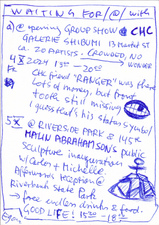 WAITING FOR/@/with
a) @ opening GROUP SHOW @ CHC
GALERIE SHIBUMI 13 Market St
ca. 20 ARTISTS. CROWDED, NO WONDER
4 X 2024 15⁰⁰–20⁰⁰
Fr.
CHC friend "RANGER" was there
Lots of money, but front
tooth still missing
I guess that's his status symbol
5 X @ RIVERSIDE PARK @ 145 St
MALIN ABRAHAMSONS Public
Sculpture inauguration
w/ Carlos + Michelle.
Afterwards reception @
Riverbank State Park
→ free drinks & food.
GOOD LIFE! 15³⁰–18